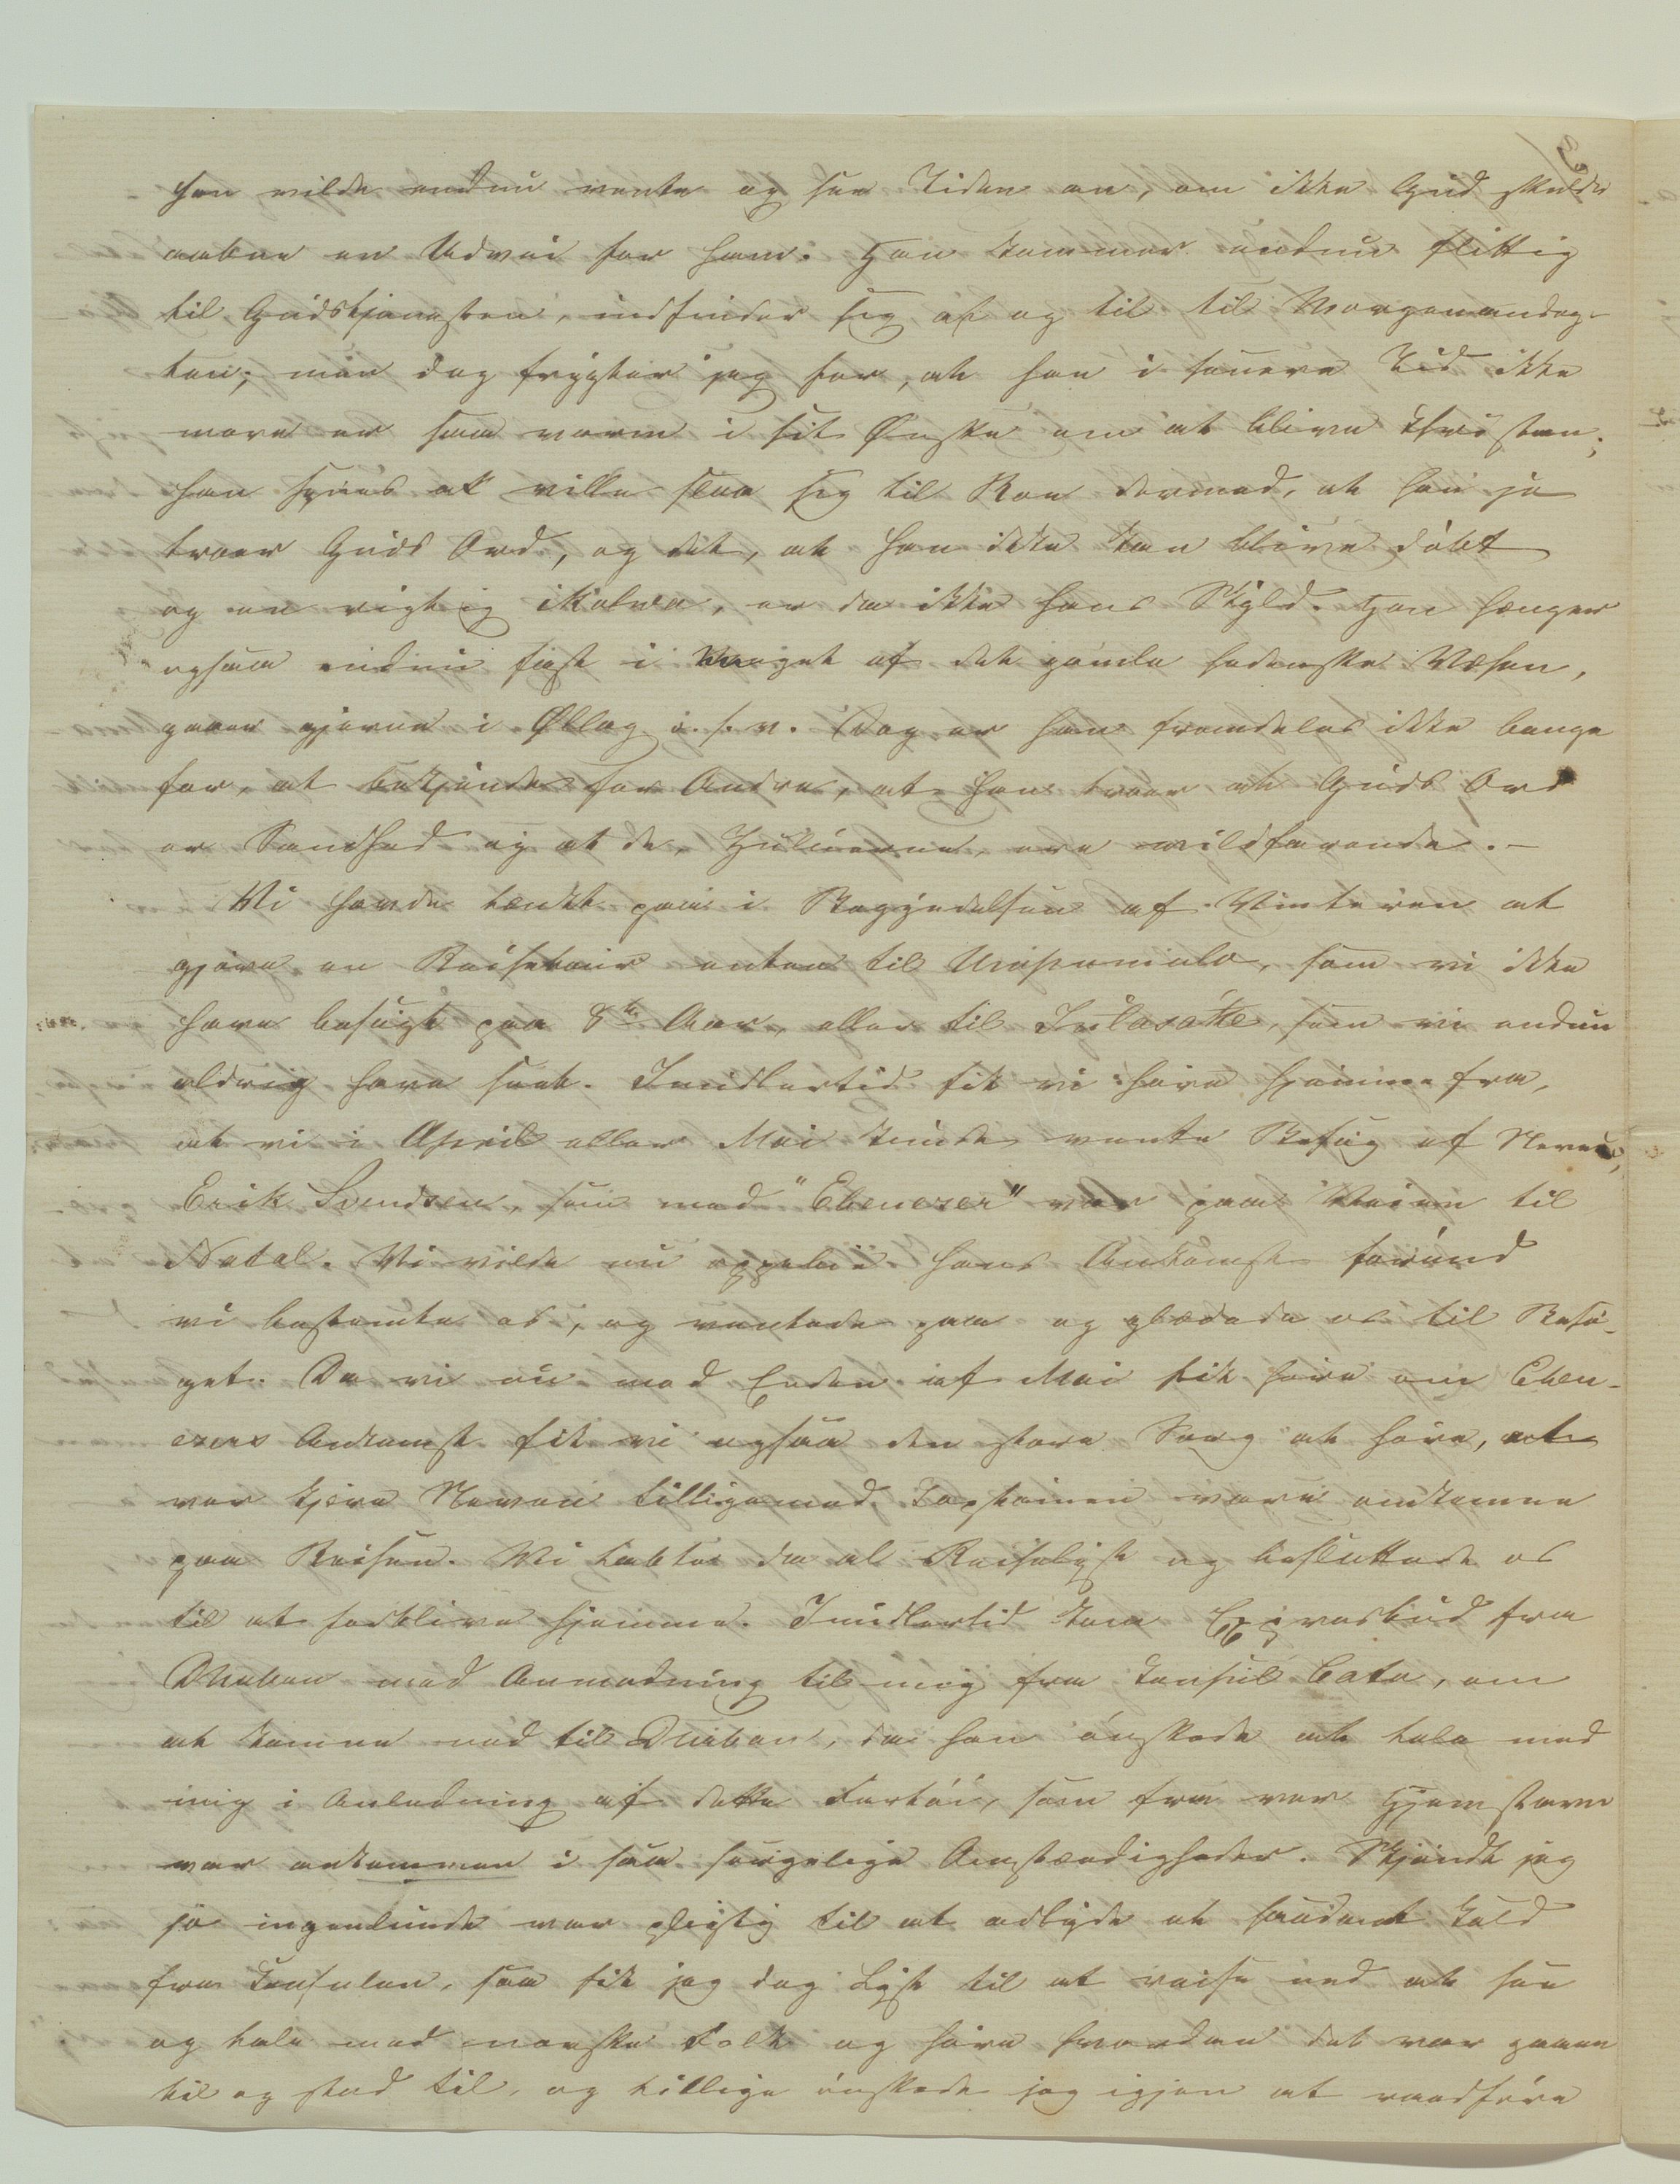 han vilde endnu vente og see Tiden an, om ikke Gud skulde
aabne en Udvei for ham. Han kommer endnu flittig
til Gudstjenesten, indfinder sig af og til til Morgenandag-
ten; men dog frygter jeg for, at han i senere Tid ikke
mere er saa varm i sit Ønske om at blive Christen;
han synes at ville slaa sig til Ro dermed, at han jo
troer Guds Ord, og det, at han ikke kan blive döbt
og en rigtig ikolwa, er da ikke hans Skyld. Han hænger
ogsaa endnu fast i Meget af det gamle hedenske Væsen,
gaaer gjerne i Øllag o. s. v. Dog er han fremdeles ikke bange
for, at bekjende for Andre, at han troer at Guds Ord
er Sandhed og at de, Zuluerne, ere vildfarende. –
Vi havde tænkt paa i Begyndelsen af Vinteren at
gjöre en Reisetour enten til Umpumulo, som vi ikke
have besögt paa 8te Aar, eller til Inlazatke, som vi endnu
aldrig have seet. Imidlertid fik vi höre hjemme fra,
at vi i April eller Mai kunde vente Besög af Neveu,
Erik Svendsen, som med "Ebenezer" var paa Veien til
Natal. Vi vilde nu oppebie hans Ankomst forend
vi bestemte os, og ventede paa og glædede os til Besö-
get. Da vi nu mod Enden af Mai fik höre om Eben-
ezers Ankomst fik vi ogsaa den store Sorg at höre, at
vor kjere Neveu tilligemed Captainen vare omkomne
paa Reisen. Vi tabte da al Reiselyst og besluttede os
til at forblive hjemme. Imidlertid kom Expressbud fra
Durban med Anmodning til mig fra Consul Cato, om
at komme ned til Durban, da han önskede at tale med
mig i Anledning af dette Fartöi, som fra vor Hjemstavn
var ankommen i saa sörgelige Omstændigheder. Skjöndt jeg
jo ingenlunde var pligtig til at adlyde et saadant Kald
fra Consulen, saa fik jeg dog Lyst til at reise ned at see
og tale med norske Folk og höre hvordan det var gaaet
til og stod til, og tillige önskede jeg igjen at raadföre